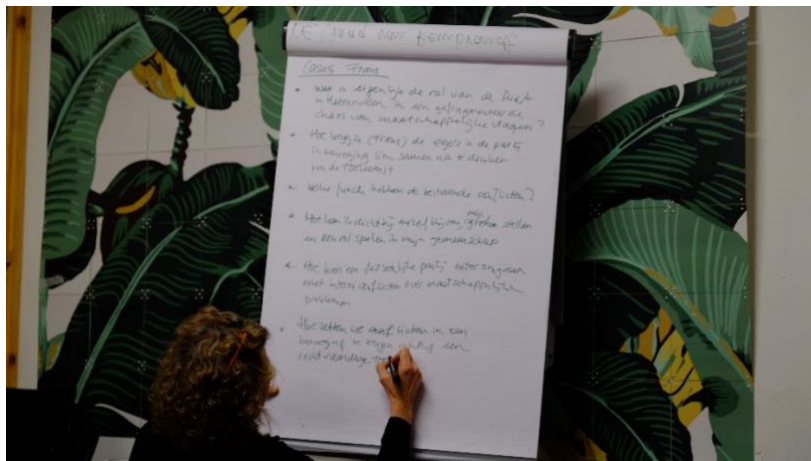 Casus Frans
• Wat is eigenlijk de rol van de
in een gefragmenteerde
chaos van maatschappelijke vragen?
• Hoe krijg je (Frans) de ego's in de partij
in beweging om samen na te denken
over de toekomst
• Welke functie hebben de bestaande conflicten?
• Hoe kan ik dichtbij mezelf blijven, stellen
en een rol spelen in mijn gemeenschap
• Hoe kan een partij beter omgaan
met interne conflicten over maatschappelijke
problemen
• Hoe zetten we conflicten in
beweging te krijgen richting een